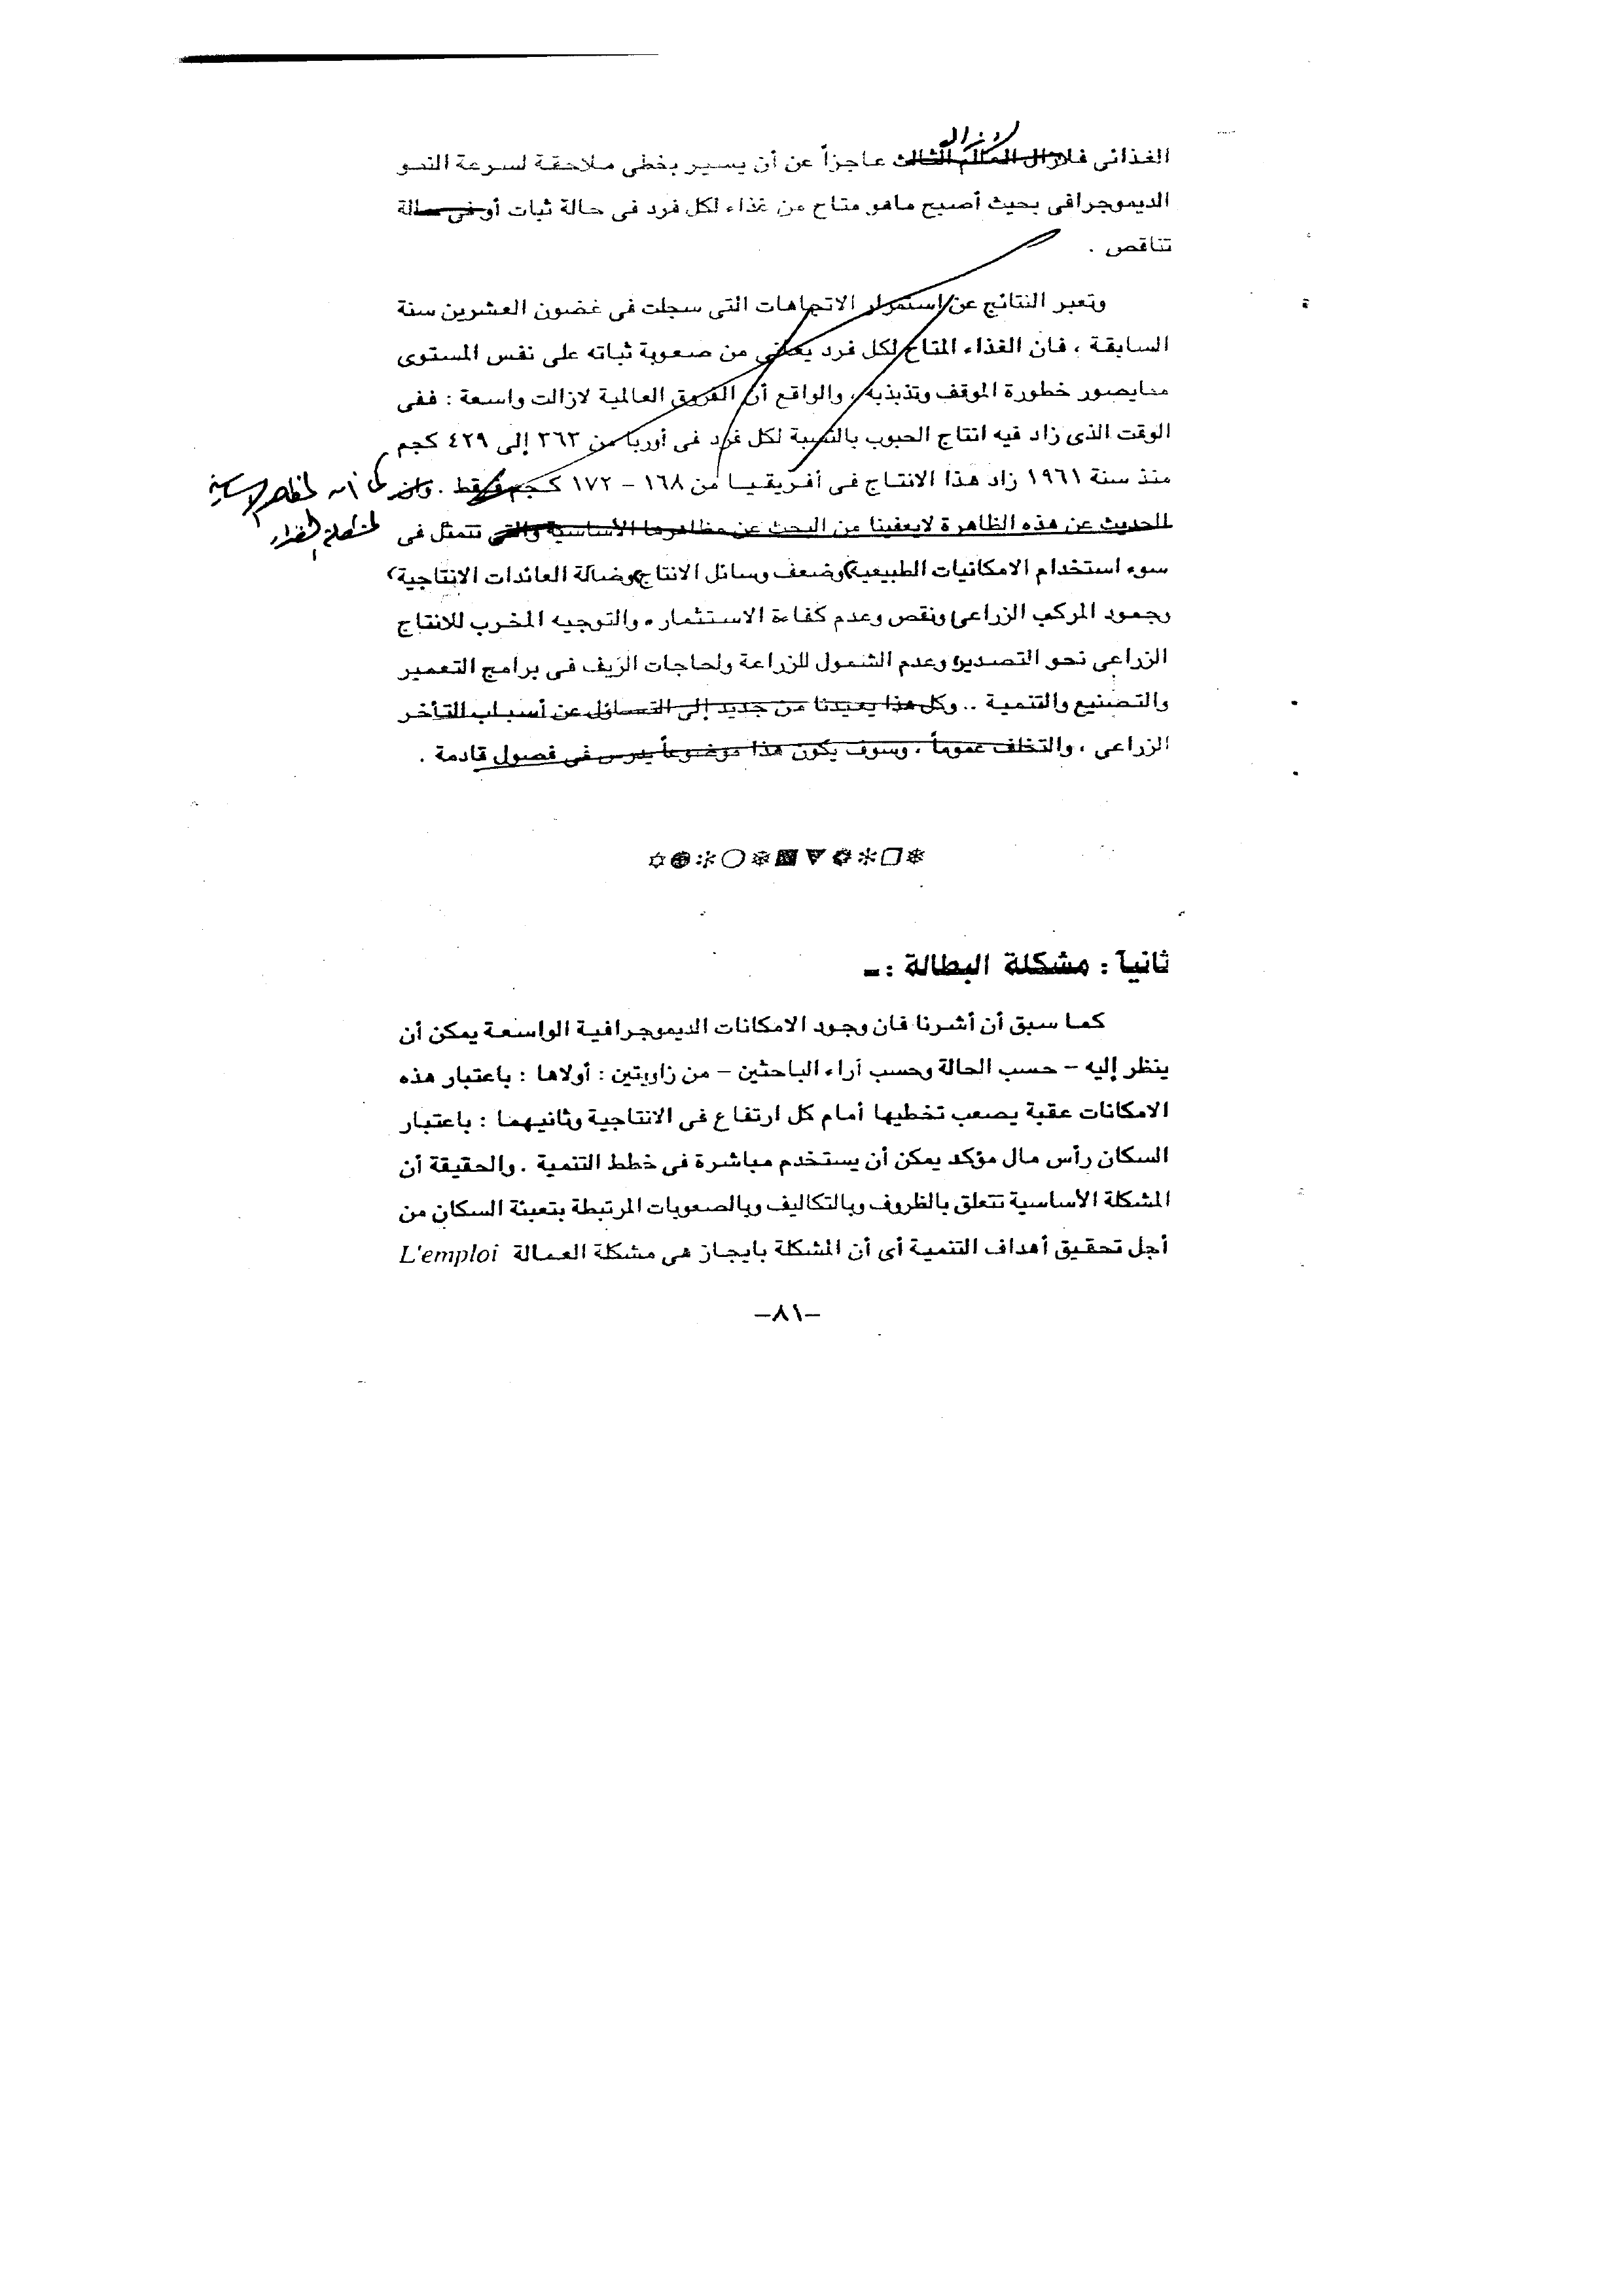 الغذائى فلازال العالم الثالث عاجزاً عن أن يسير بخطى ملاحقة لسرعة النمو
الديموجرافى بحيث أصبح ماهو متاح من غذاء لكل فرد فى حالة ثبات أو فى حالة
تناقص .
وتعبر النتائج عن استمرار الاتجاهات التى سجلت فى غضون العشرين سنة
السابقة ، فان الغذاء المتاح لكل فرد يعانى من صعوبة ثباته على نفس المستوى
ممايصور خطورة الموقف وتذبذبه ، والواقع أن الفروق العالمية لازالت واسعة : ففى
الوقت الذى زاد فيه انتاج الحبوب بالنسبة لكل فرد فى أوربا من ٣٦٣ إلى ٤٢٩ كجم
منذ سنة ١٩٦١ زاد هذا الانتاج فى أفريقيا من ١٦٨ - ١٧٢ كجم فقط . وان
الحديث عن هذه الظاهرة لايعفينا من البحث عن مظاهرها الأساسية والتى تتمثل فى
سوء استخدام الامكانيات الطبيعية وضعف وسائل الانتاج وضآلة العائدات الانتاجية
وجمود المركب الزراعى ونقص وعدم كفاءة الاستثمار والتوجيه المخرب للانتاج
الزراعى نحو التصدير وعدم الشمول للزراعة ولحاجات الريف فى برامج التعمير
والتصنيع والتنمية .. وكل هذا يعيدنا من جديد إلى التساؤل عن أسباب التأخر
الزراعى ، والتخلف عموماً ، وسوف يكون هذا موضوعاً يدرس فى فصول قادمة .
ثانياً : مشكلة البطالة :ـ
كما سبق أن أشرنا فان وجود الامكانات الديموجرافية الواسعة يمكن أن
ينظر إليه - حسب الحالة وحسب آراء الباحثين - من زاويتين : أولاها : باعتبار هذه
الامكانات عقبة يصعب تخطيها أمام كل ارتفاع فى الانتاجية وثانيهما : باعتبار
السكان رأس مال مؤكد يمكن أن يستخدم مباشرة فى خطط التنمية . والحقيقة أن
المشكلة الأساسية تتعلق بالظروف وبالتكاليف وبالصعوبات المرتبطة بتعبئة السكان من
أجل تحقيق أهداف التنمية أى أن المشكلة بايجاز هى مشكلة العمالة L'emploi
-٨١-